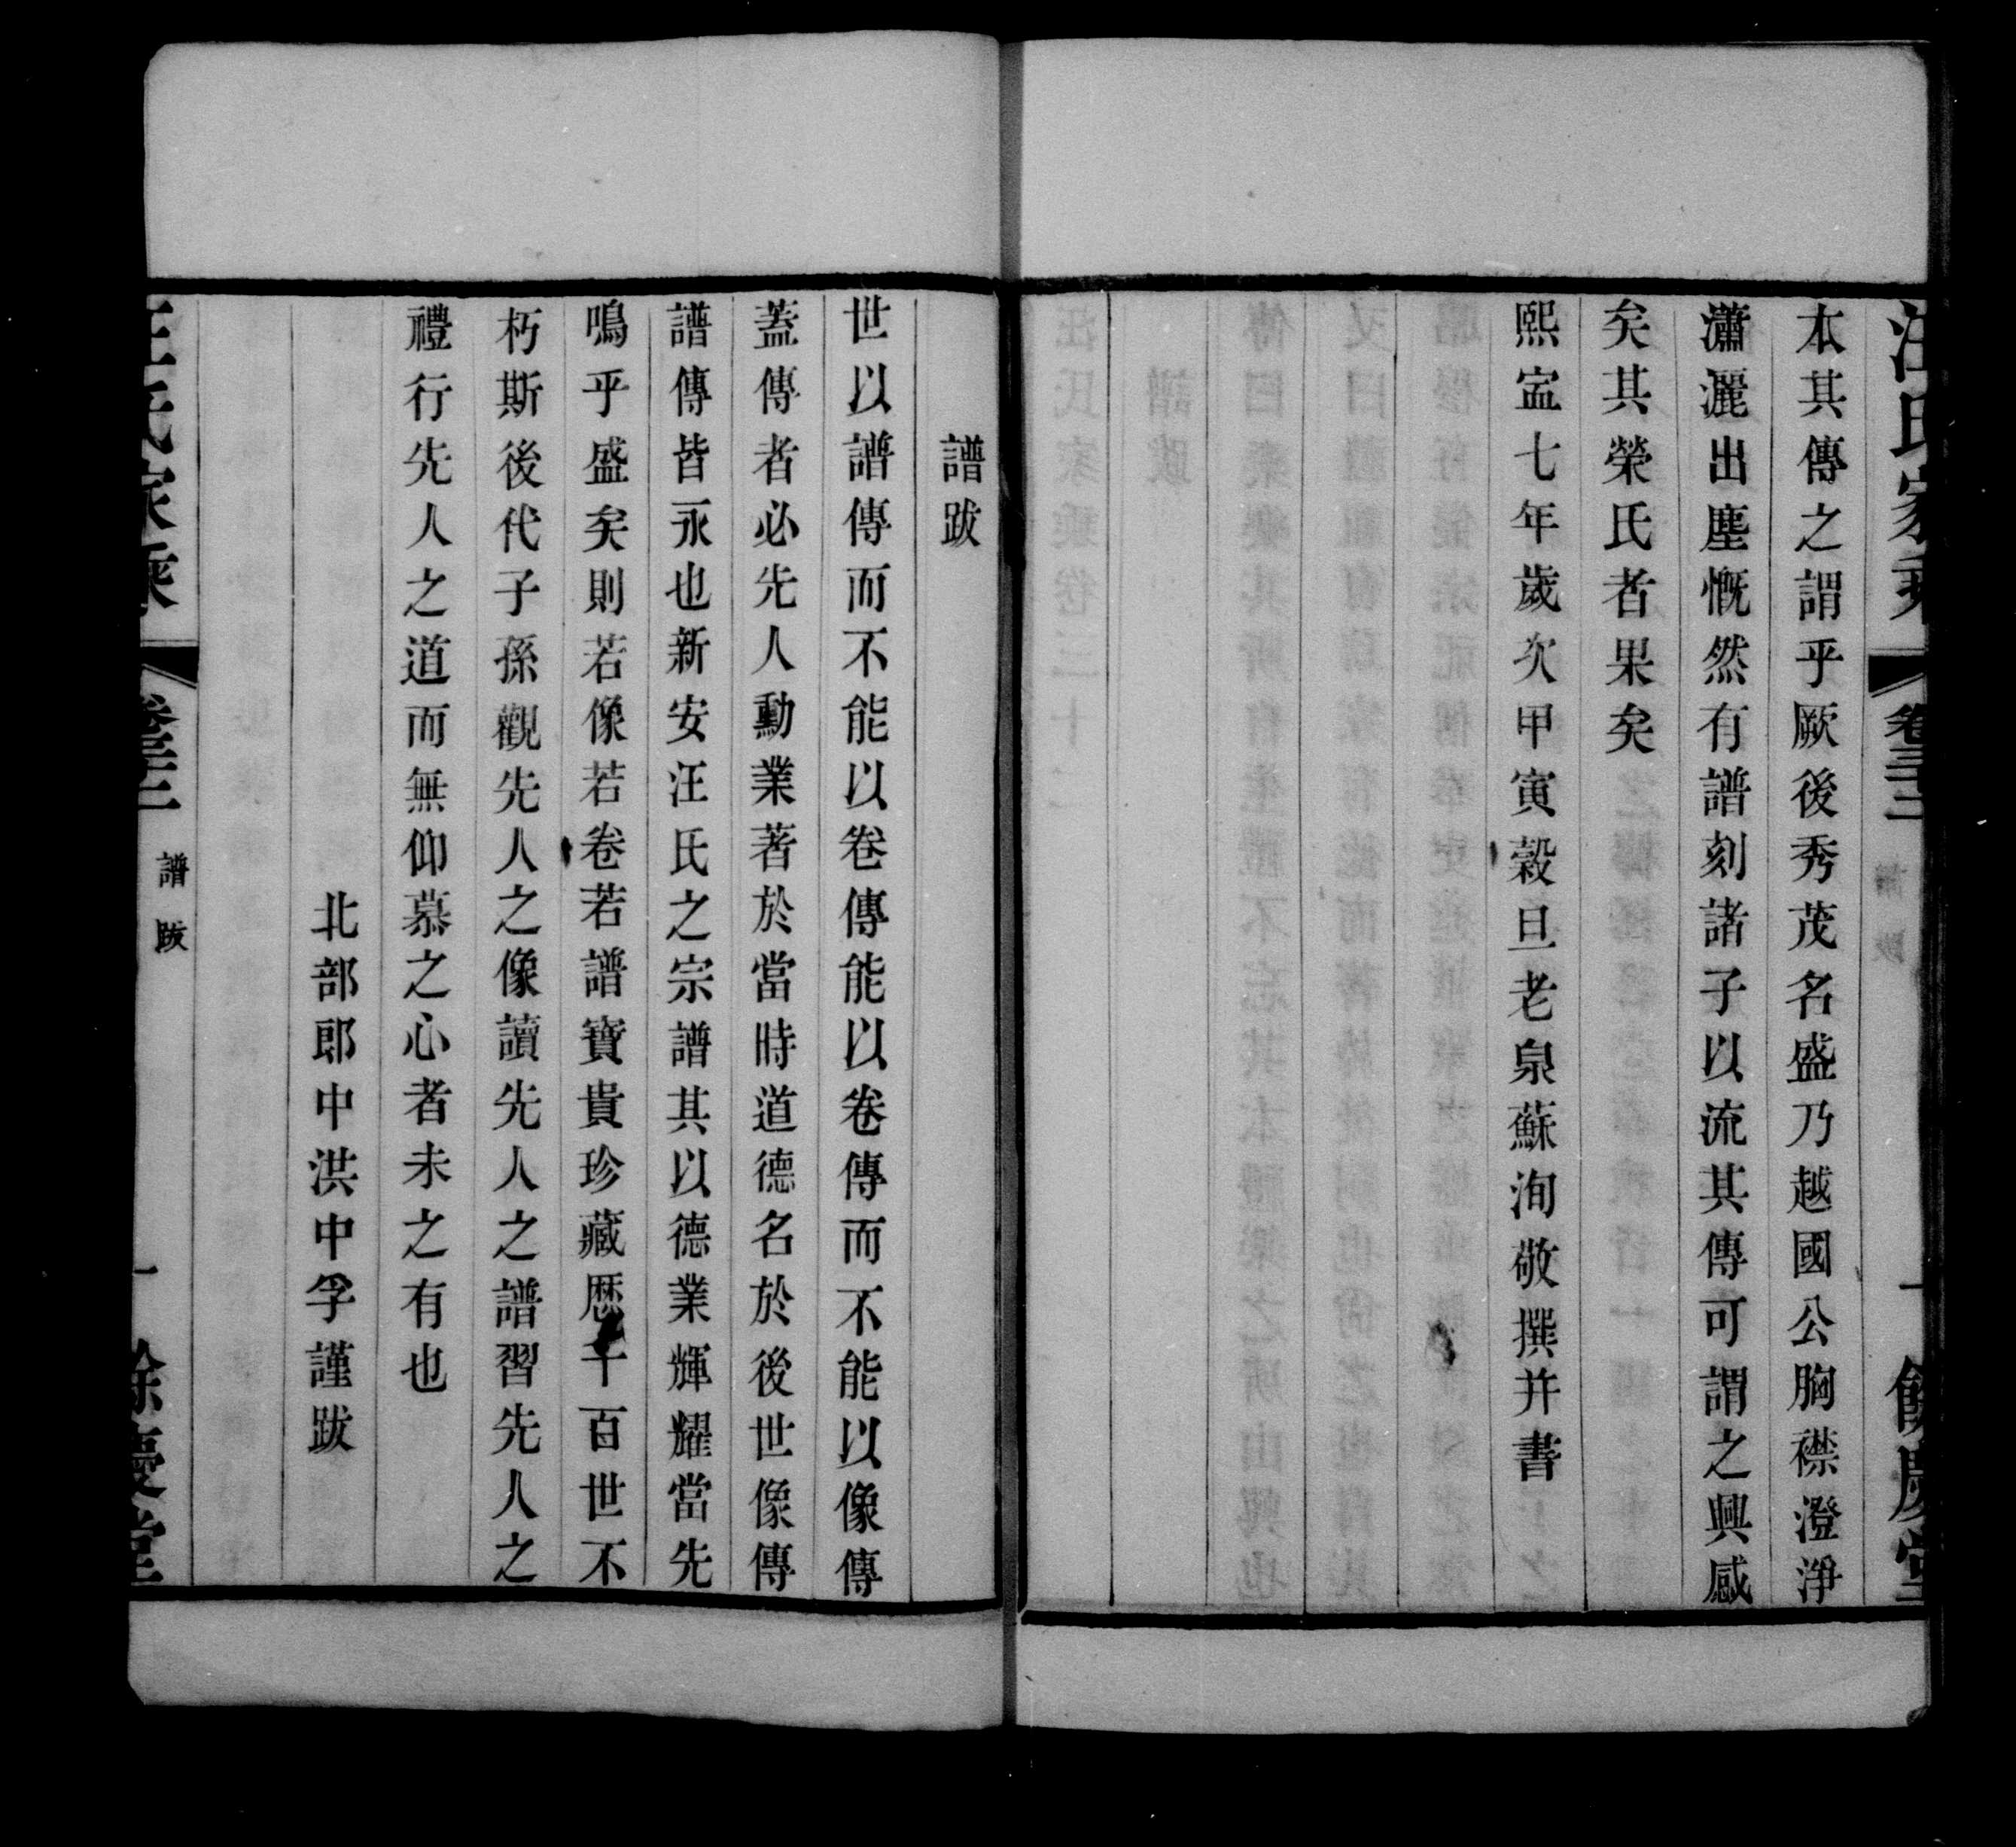 汪氏家乘
卷三十二
一
餘慶堂
本其傳之謂乎厥後秀茂名盛乃越國公胸襟澄淨
瀟灑出塵慨然有譜刻諸子以流其傳可謂之興感
矣其榮氏者果矣
熙寍七年歲次甲寅穀旦老泉蘇洵敬撰并書
譜跋
世以譜傳而不能以卷傳能以卷傳而不能以像傳
蓋傳者必先人勳業著於當時道德名於後世像傳
譜傳皆永也新安汪氏之宗譜其以德業輝耀當先
鳴乎盛矣則若像若卷若譜寶貴珍藏歷千百世不
朽斯後代子孫觀先人之像讀先人之譜習先人之
禮行先人之道而無仰慕之心者未之有也
北部郎中洪中孚謹跋
汪氏家乘
卷三十二
譜跋
一
餘慶堂